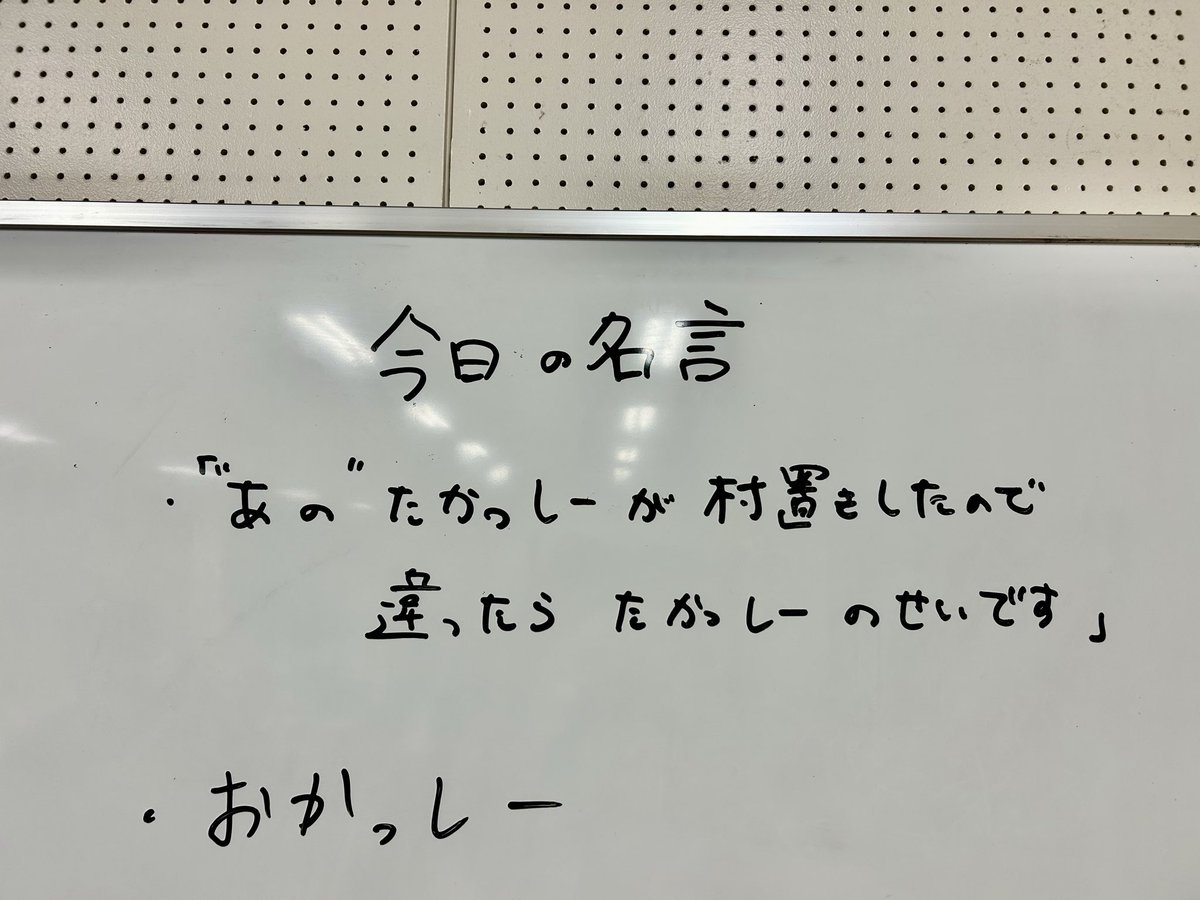 今日の名言
・「"あの"たかっしーが村置きしたので
違ったらたかっしーのせいです」
・おかっしー